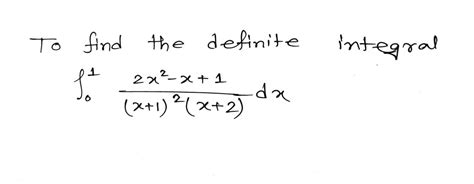 To find the definite integral
∫₀¹ (2x²-x+1)/((x+1)²(x+2)) dx